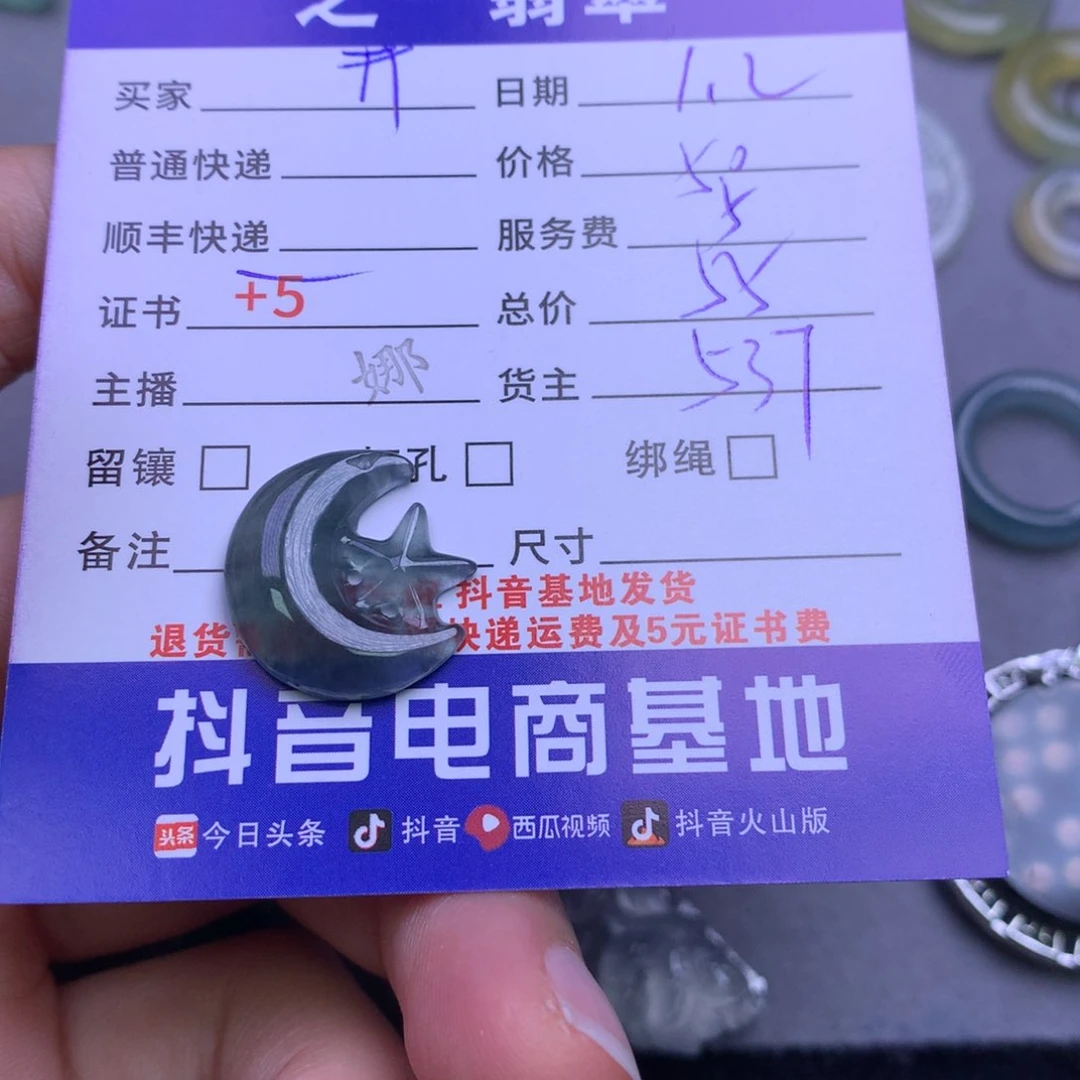 之 翡翠
买家 开 日期 1.2
普通快递 价格 50
顺丰快递 服务费 5
证书 +5 总价 55
主播 娜 货主 537
留镶 孔 绑绳
备注 尺寸
抖音基地发货
退货 快递运费及5元证书费
抖音电商基地
头条 今日头条 抖音 西瓜视频 抖音火山版